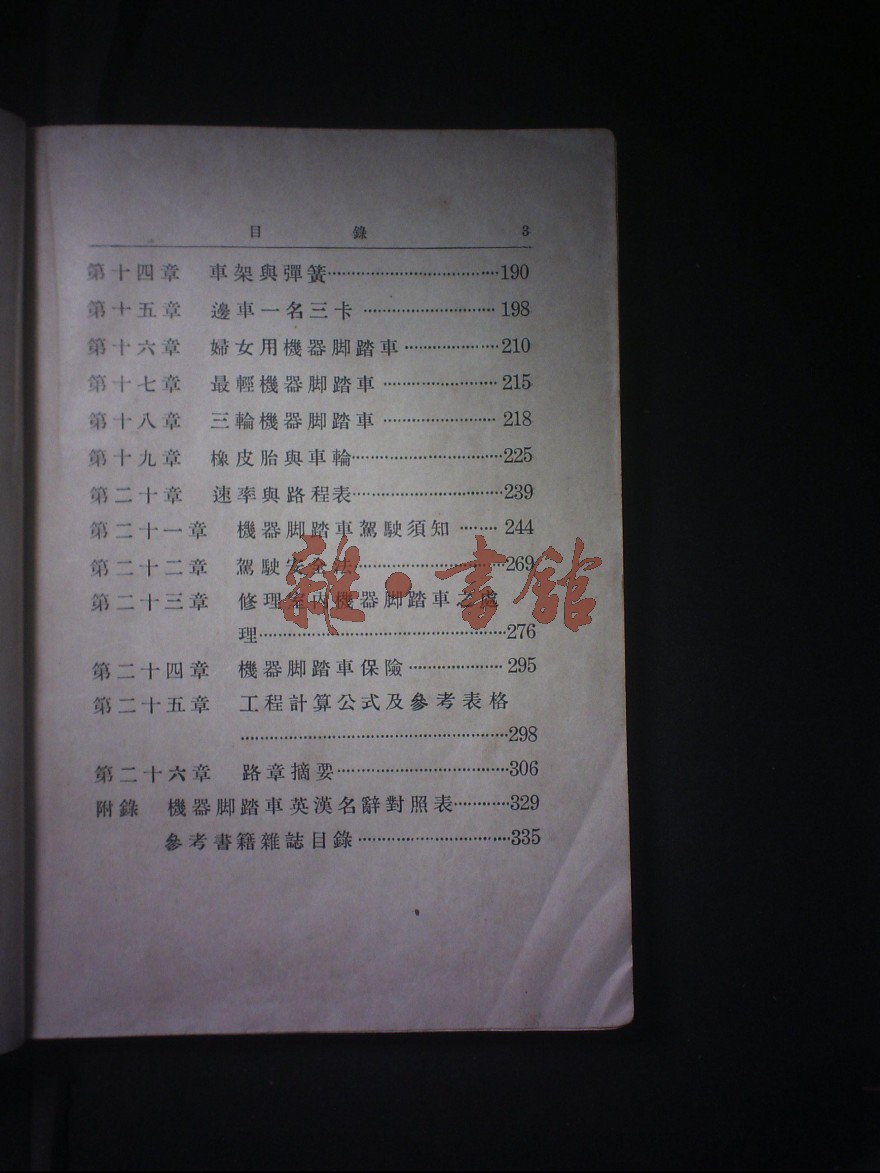 目 錄 3
第十四章 車架與彈簧…………190
第十五章 邊車一名三卡…………198
第十六章 婦女用機器脚踏車…………210
第十七章 最輕機器脚踏車…………215
第十八章 三輪機器脚踏車…………218
第十九章 橡皮胎與車輪…………225
第二十章 速率與路程表…………239
第二十一章 機器脚踏車駕駛須知………244
第二十二章 駕駛安全法…………269
第二十三章 修理室內機器脚踏車之處
理…………276
雜·書舘
第二十四章 機器脚踏車保險…………295
第二十五章 工程計算公式及參考表格
…………298
第二十六章 路章摘要…………306
附錄 機器脚踏車英漢名辭對照表…………329
參考書籍雜誌目錄…………335